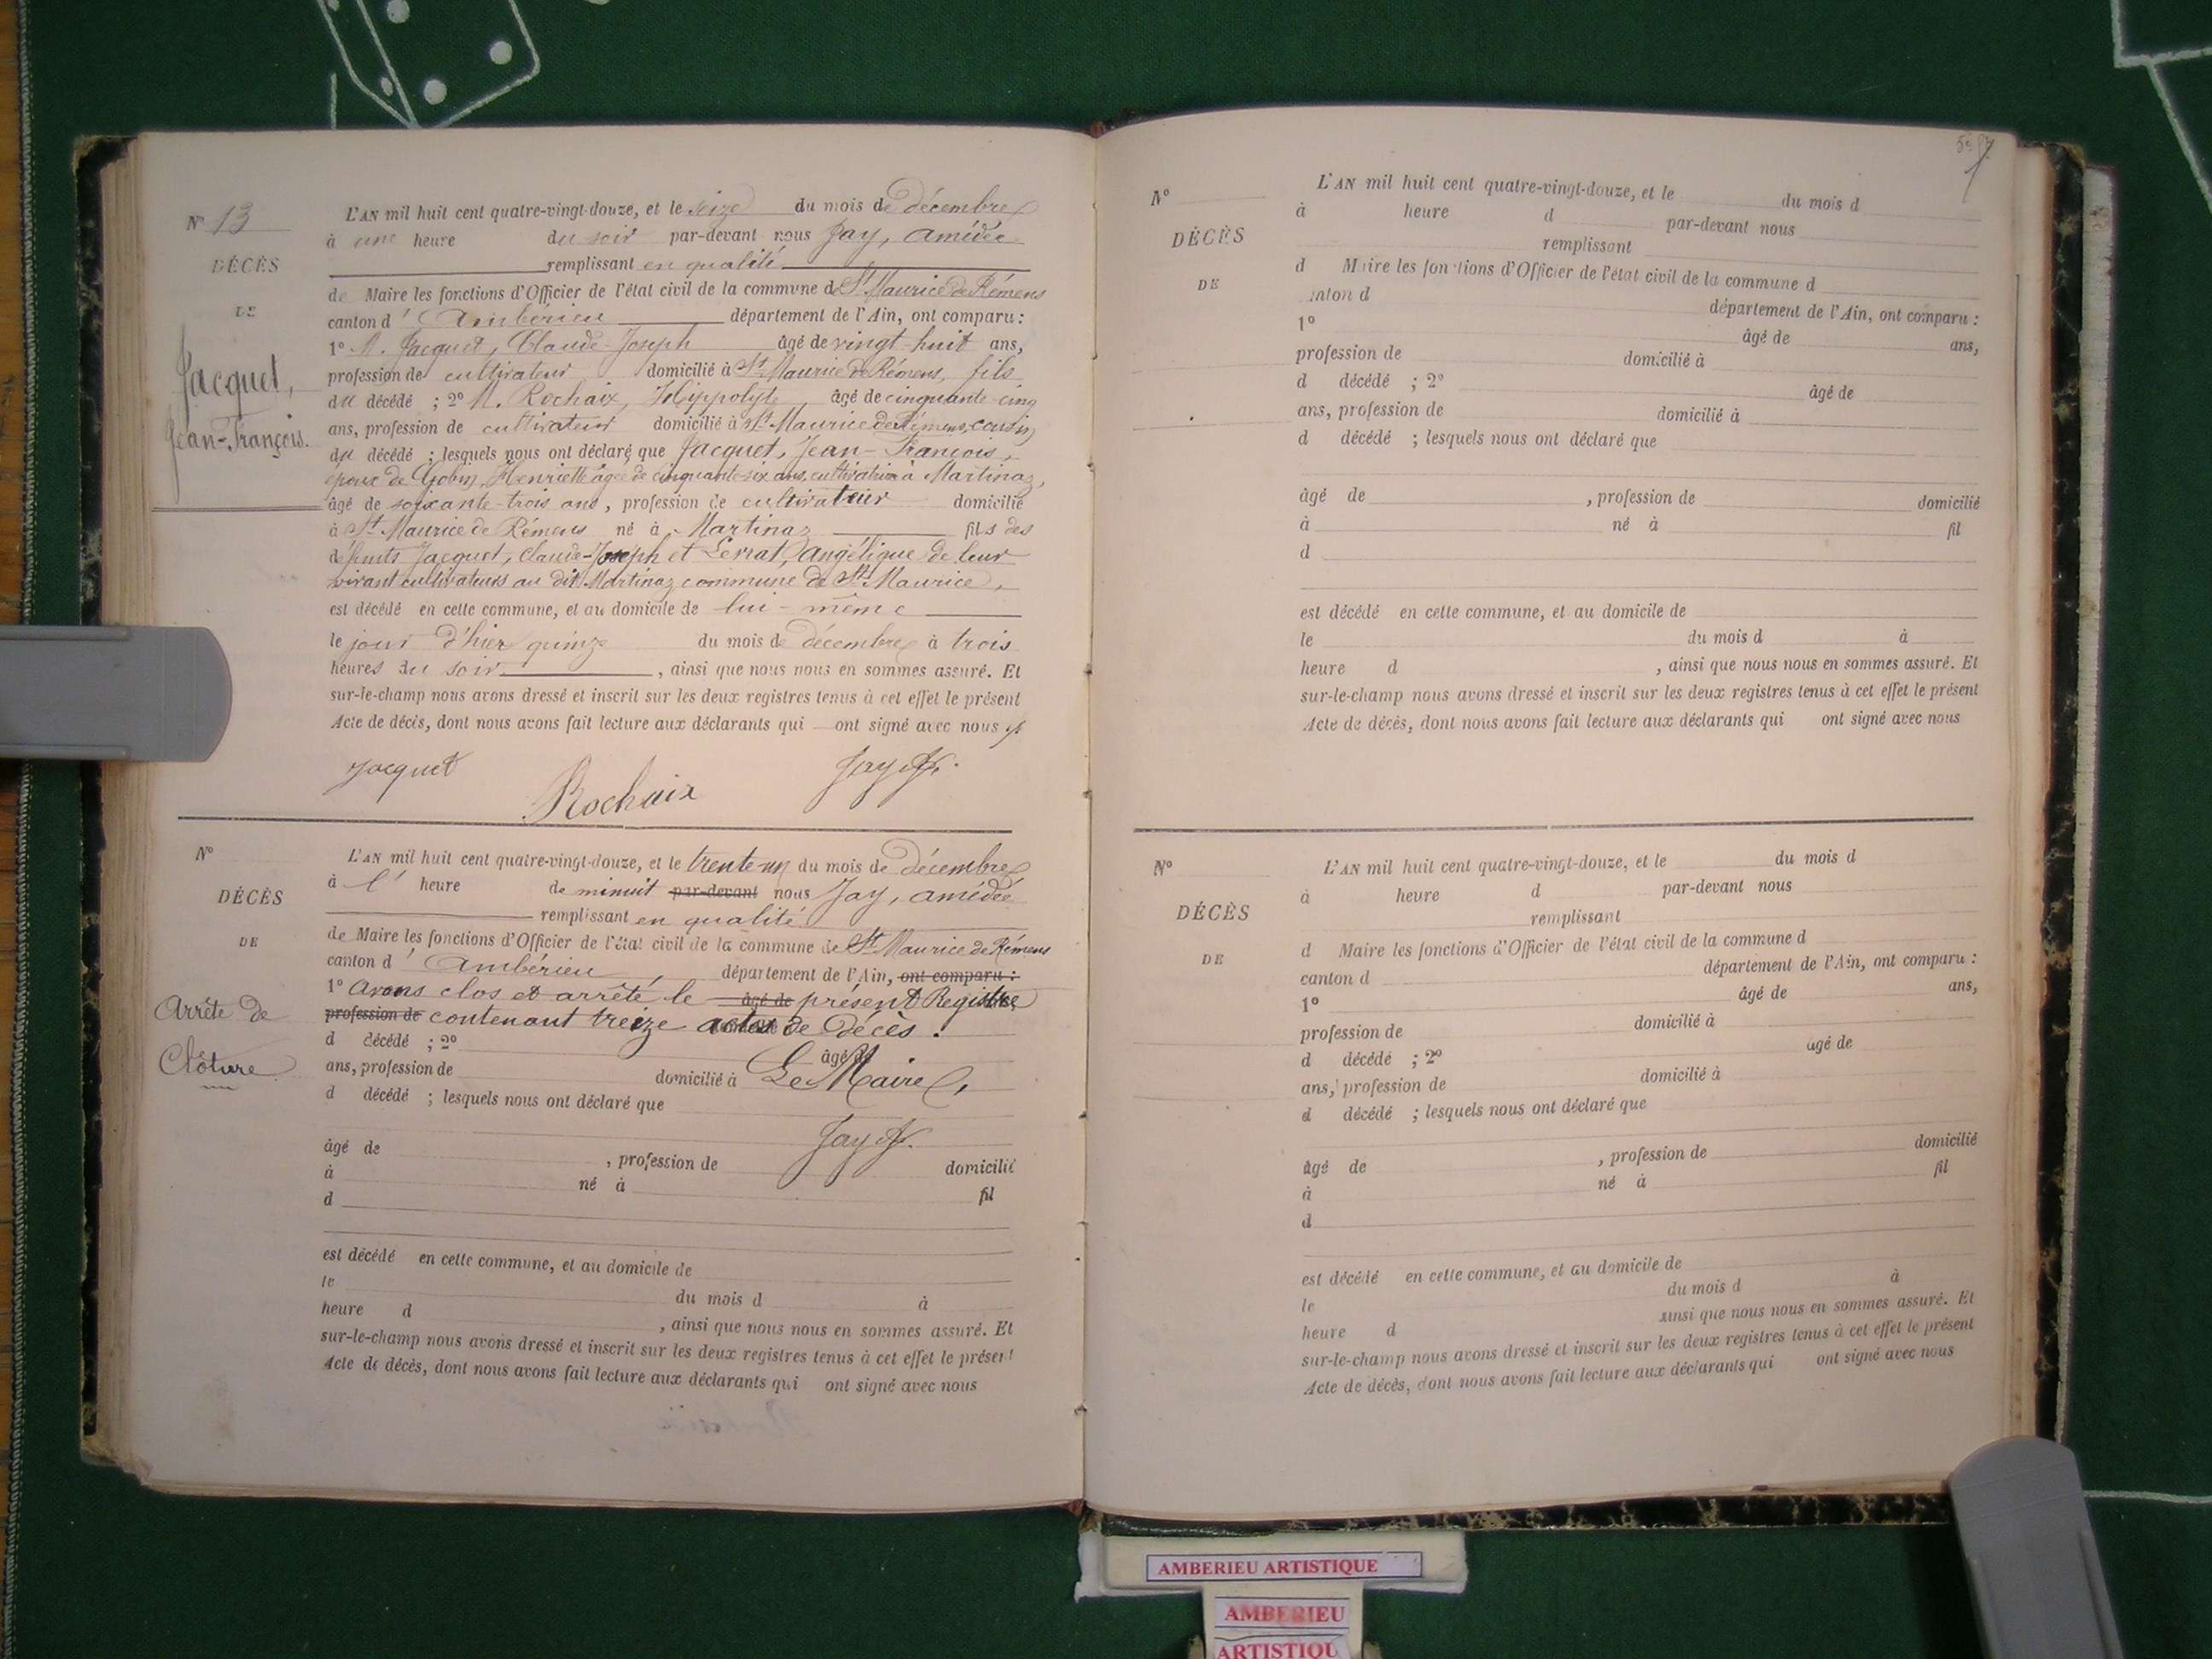 N° 13
DÉCÈS
DE
Jacquet,
Jean-François.
L'AN mil huit cent quatre-vingt-douze, et le seize du mois de décembre
à une heure du soir par-devant nous Jay, Amédée
remplissant en qualité
de Maire les fonctions d'Officier de l'état civil de la commune de St Maurice de Rémens
canton d' Ambérieu département de l'Ain, ont comparu :
1° M. Jacquet, Claude-Joseph âgé de vingt-huit ans,
profession de cultivateur domicilié à St Maurice de Rémens, fils
du décédé ; 2° M. Rochaix, Hippolyte âgé de cinquante-cinq
ans, profession de cultivateur domicilié à St Maurice de Rémens, cousin
du décédé ; lesquels nous ont déclaré que Jacquet, Jean-François,
époux de Gobin, Henriette âgée de cinquante-six ans, cultivatrice à Martinaz,
âgé de soixante-trois ans, profession de cultivateur domicilié
à St Maurice de Rémens né à Martinaz fils des
défunts Jacquet, Claude-Joseph et Angélique de leur
vivant cultivateurs au dit Martinaz commune de St Maurice,
est décédé en cette commune, et au domicile de lui-même
le jour d'hier quinze du mois de décembre à trois
heures du soir , ainsi que nous nous en sommes assuré. Et
sur-le-champ nous avons dressé et inscrit sur les deux registres tenus à cet effet le présent
Acte de décès, dont nous avons fait lecture aux déclarants qui ont signé avec nous
Jacquet Rochaix Jay
N°
DÉCÈS
DE
Arrêté de
Clôture
L'AN mil huit cent quatre-vingt-douze, et le trente-un du mois de décembre
à l' heure de minuit par-devant nous Jay, Amédée
remplissant en qualité
de Maire les fonctions d'Officier de l'état civil de la commune de St Maurice de Rémens
canton d' Ambérieu, département de l'Ain, ont comparu :
1° Avons clos et arrêté le âgé de présent Registre
profession de contenant treize actes de décès.
d décédé ; 2° âgé de
ans, profession de domicilié à Le Maire,
d décédé ; lesquels nous ont déclaré que
Jay
âgé de , profession de domicilié
à né à fil
d
est décédé en cette commune, et au domicile de
le du mois d à
heure d , ainsi que nous nous en sommes assuré. Et
sur-le-champ nous avons dressé et inscrit sur les deux registres tenus à cet effet le présent
Acte de décès, dont nous avons fait lecture aux déclarants qui ont signé avec nous
N°
DÉCÈS
DE
L'AN mil huit cent quatre-vingt-douze, et le du mois d
à heure d par-devant nous
remplissant
d Maire les fonctions d'Officier de l'état civil de la commune d
canton d département de l'Ain, ont comparu :
1° âgé de ans,
profession de domicilié à
d décédé ; 2° âgé de
ans, profession de domicilié à
d décédé ; lesquels nous ont déclaré que
âgé de , profession de domicilié
à né à fil
d
est décédé en cette commune, et au domicile de
le du mois d à
heure d , ainsi que nous nous en sommes assuré. Et
sur-le-champ nous avons dressé et inscrit sur les deux registres tenus à cet effet le présent
Acte de décès, dont nous avons fait lecture aux déclarants qui ont signé avec nous
N°
DÉCÈS
DE
L'AN mil huit cent quatre-vingt-douze, et le du mois d
à heure d par-devant nous
remplissant
d Maire les fonctions d'Officier de l'état civil de la commune d
canton d département de l'Ain, ont comparu :
1° âgé de ans,
profession de domicilié à
d décédé ; 2° âgé de
ans, profession de domicilié à
d décédé ; lesquels nous ont déclaré que
âgé de , profession de domicilié
à né à fil
d
est décédé en cette commune, et au domicile de
le du mois d à
heure d ainsi que nous nous en sommes assuré. Et
sur-le-champ nous avons dressé et inscrit sur les deux registres tenus à cet effet le présent
Acte de décès, dont nous avons fait lecture aux déclarants qui ont signé avec nous
AMBERIEU ARTISTIQUE
AMBERIEU
ARTISTIQU